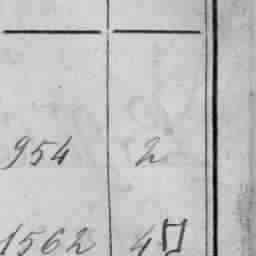 954 2
1562 4